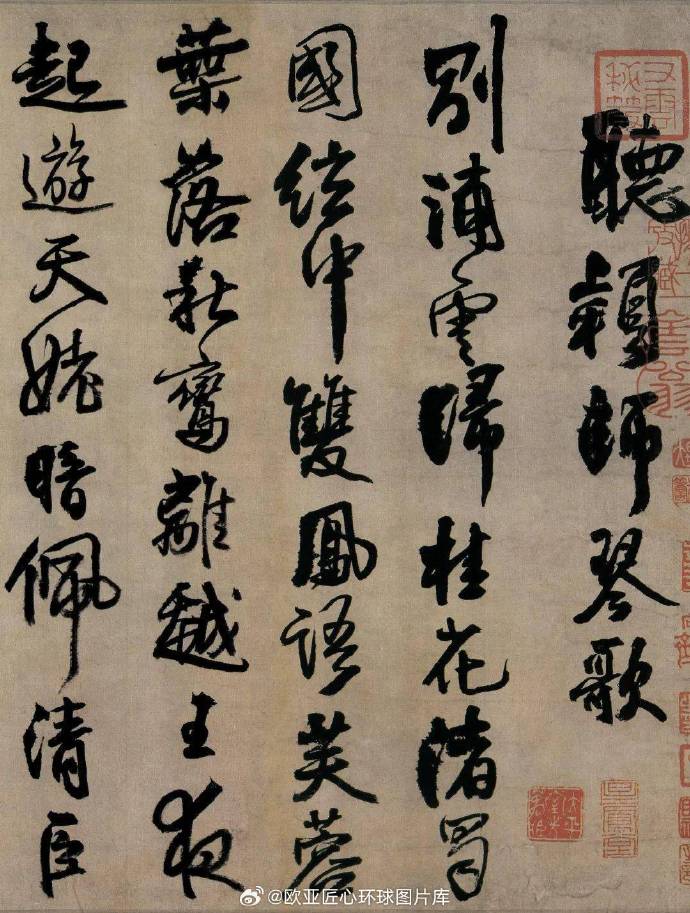 聽穎師琴歌
別浦雲歸桂花渚蜀
國絃中雙鳳語芙蓉
葉落秋鸞離越王夜
起遊天姥暗佩清臣
@欧亚匠心环球图片库